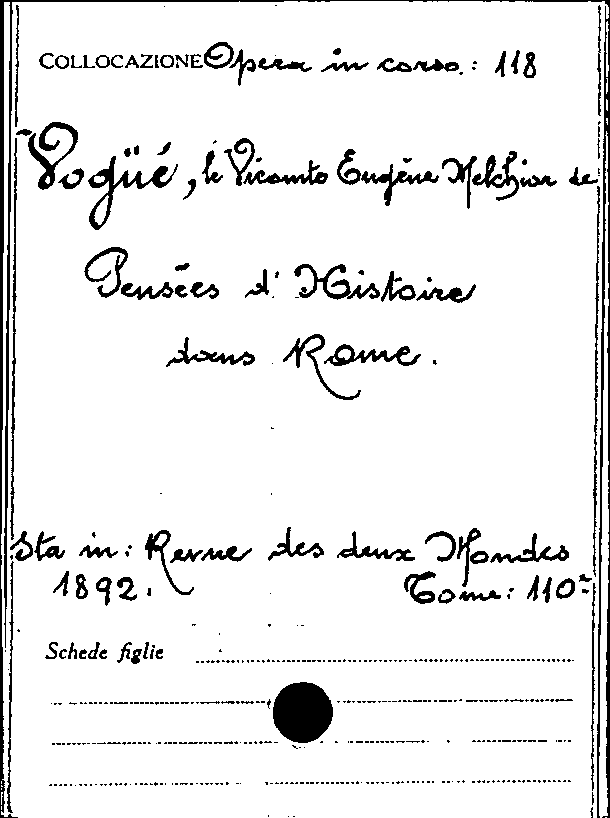 COLLOCAZIONE Opera in corso.: 118
Vogüé, le Vicomte Eugène Melchior de
Pensées d'Histoire
dans Rome.
Sta in: Revue des deux Mondes
1892. Tome: 110º
Schede figlie